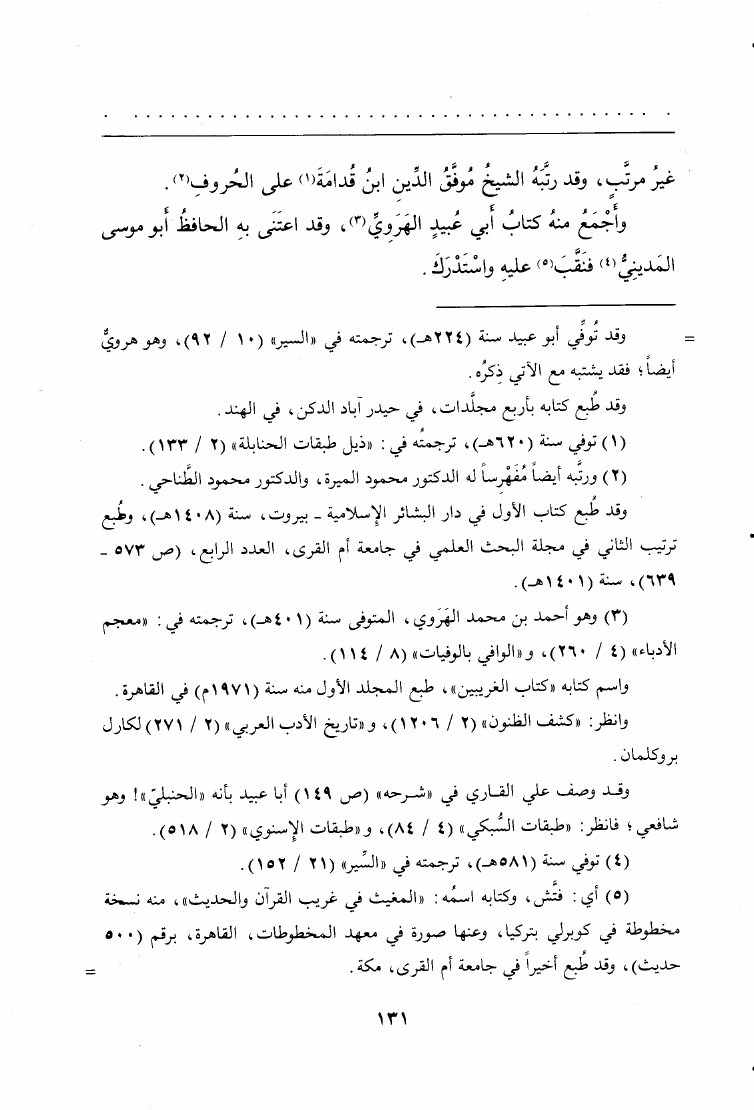 غيرُ مرتَّبٍ، وقد رتَّبَهُ الشيخُ مُوفَّقُ الدِّينِ ابنُ قُدامَةَ(١) على الحُروفِ(٢).
وأَجْمَعُ منهُ كتابُ أَبي عُبيدٍ الهَرَويِّ(٣)، وقد اعتَنَى بهِ الحافظُ أَبو موسى
المَدينِيُّ(٤) فنَقَّبَ(٥) عليهِ واسْتَدْرَكَ.
= وقد تُوفِّي أبو عبيد سنة (٢٢٤هـ)، ترجمته في «السير» (١٠ / ٩٢)، وهو هرويٌّ
أيضاً؛ فقد يشتبه مع الآتي ذِكرُه.
وقد طُبع كتابه بأربع مجلَّدات، في حيدر آباد الدكن، في الهند.
(١) توفي سنة (٦٢٠هـ)، ترجمتُه في: «ذيل طبقات الحنابلة» (٢ / ١٣٣).
(٢) ورتَّبه أيضاً مُفَهْرِساً له الدكتور محمود الميرة، والدكتور محمود الطَّناحي.
وقد طُبع كتاب الأول في دار البشائر الإسلامية ـ بيروت، سنة (١٤٠٨هـ)، وطُبع
ترتيب الثاني في مجلة البحث العلمي في جامعة أم القرى، العدد الرابع، (ص ٥٧٣ ـ
٦٣٩)، سنة (١٤٠١هـ).
(٣) وهو أحمد بن محمد الهَرَوي، المتوفى سنة (٤٠١هـ)، ترجمته في: «معجم
الأدباء» (٤ / ٢٦٠)، و«الوافي بالوفيات» (٨ / ١١٤).
واسم كتابه «كتاب الغريبين»، طبع المجلد الأول منه سنة (١٩٧١م) في القاهرة.
وانظر: «كشف الظنون» (٢ / ١٢٠٦)، و«تاريخ الأدب العربي» (٢ / ٢٧١) لكارل
بروكلمان.
وقد وصف علي القاري في «شرحه» (ص ١٤٩) أبا عبيد بأنه «الحنبليّ»! وهو
شافعي؛ فانظر: «طبقات السُّبكي» (٤ / ٨٤)، و«طبقات الإسنوي» (٢ / ٥١٨).
(٤) توفي سنة (٥٨١هـ)، ترجمته في «السِّير» (٢١ / ١٥٢).
(٥) أي: فتَّش، وكتابه اسمُه: «المغيث في غريب القرآن والحديث»، منه نسخة
مخطوطة في كوبرلي بتركيا، وعنها صورة في معهد المخطوطات، القاهرة، برقم (٥٠٠
حديث)، وقد طُبع أخيراً في جامعة أم القرى، مكة. =
١٣١